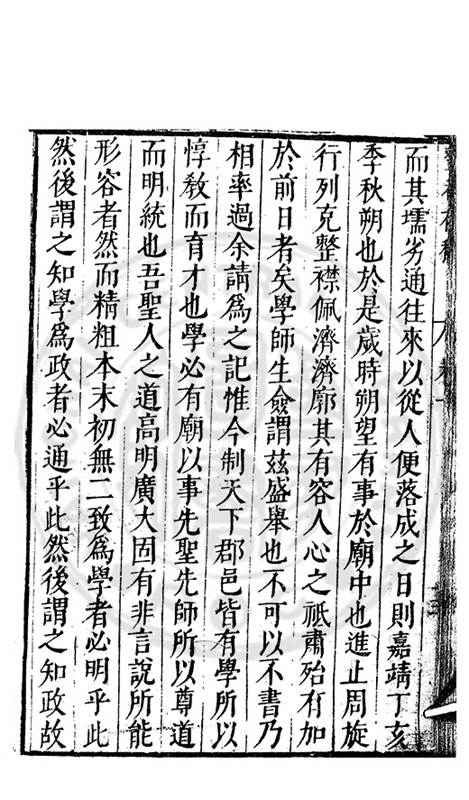 而其壖劣通往來以從人便落成之日則嘉靖丁亥
季秋朔也於是歲時朔望有事於廟中也進止周旋
行列克整襟佩濟濟廓其有容人心之祗肅殆有加
於前日者矣學師生僉謂茲盛舉也不可以不書乃
相率過余請爲之記惟今制天下郡邑皆有學所以
惇敎而育才也學必有廟以事先聖先師所以尊道
而明統也吾聖人之道高明廣大固有非言說所能
形容者然而精粗本末初無二致爲學者必明乎此
然後謂之知學爲政者必通乎此然後謂之知政故